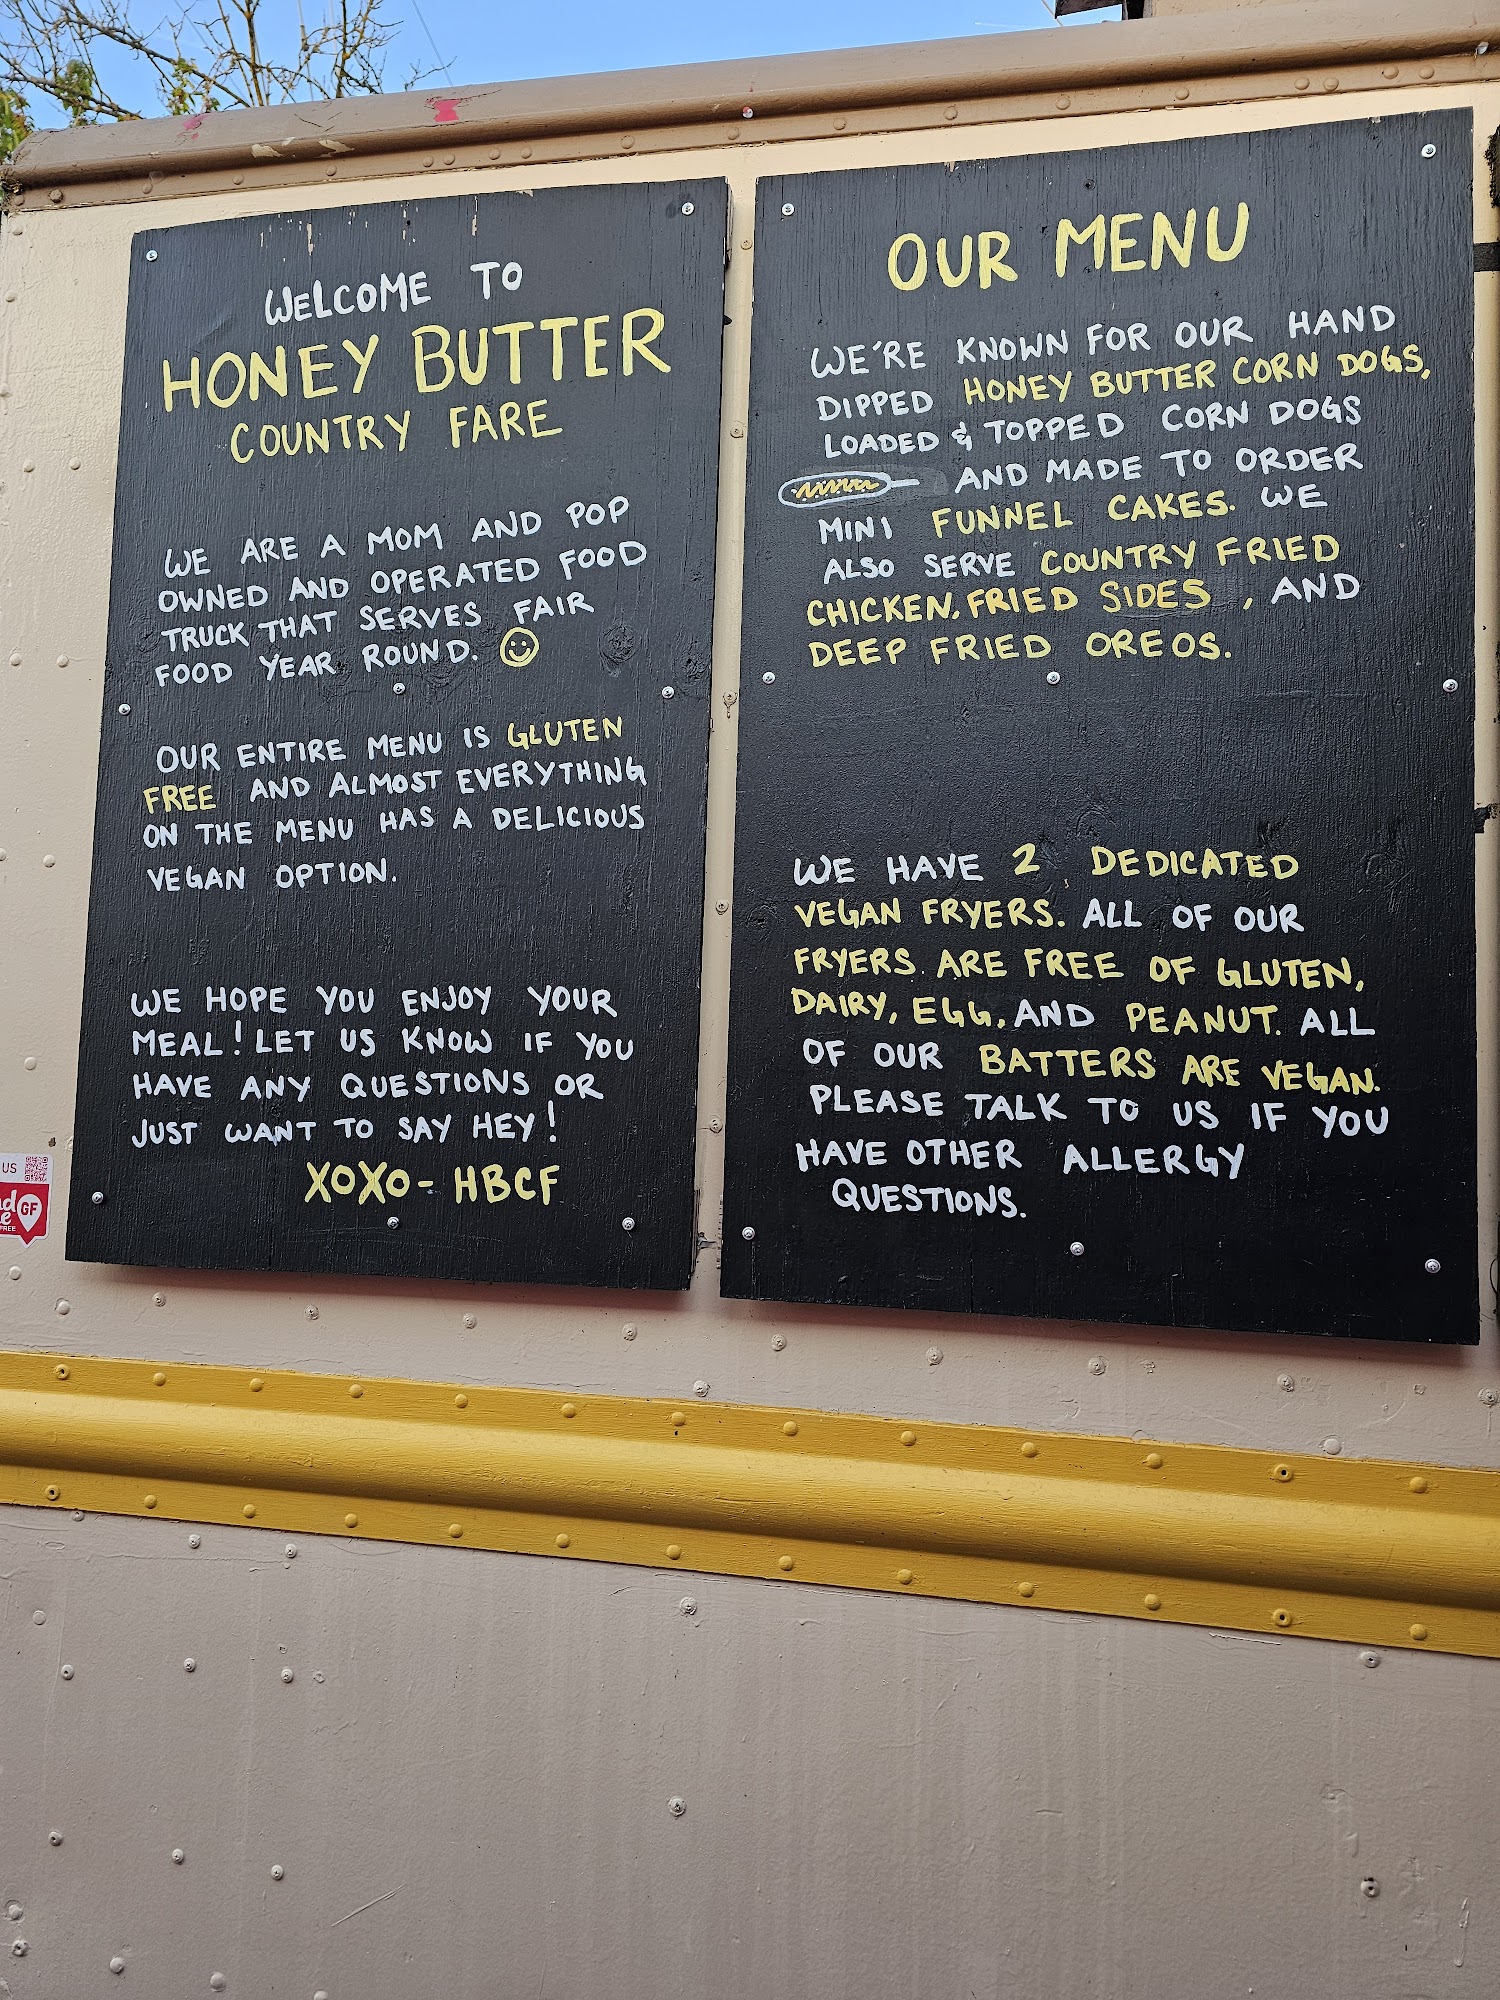 WELCOME TO
HONEY BUTTER
COUNTRY FARE
WE ARE A MOM AND POP
OWNED AND OPERATED FOOD
TRUCK THAT SERVES FAIR
FOOD YEAR ROUND.
OUR ENTIRE MENU IS GLUTEN
FREE AND ALMOST EVERYTHING
ON THE MENU HAS A DELICIOUS
VEGAN OPTION.
WE HOPE YOU ENJOY YOUR
MEAL! LET US KNOW IF YOU
HAVE ANY QUESTIONS OR
JUST WANT TO SAY HEY!
XOXO - HBCF
OUR MENU
WE'RE KNOWN FOR OUR HAND
DIPPED HONEY BUTTER CORN DOGS,
LOADED & TOPPED CORN DOGS
AND MADE TO ORDER
MINI FUNNEL CAKES. WE
ALSO SERVE COUNTRY FRIED
CHICKEN, FRIED SIDES, AND
DEEP FRIED OREOS.
WE HAVE 2 DEDICATED
VEGAN FRYERS. ALL OF OUR
FRYERS ARE FREE OF GLUTEN,
DAIRY, EGG, AND PEANUT. ALL
OF OUR BATTERS ARE VEGAN.
PLEASE TALK TO US IF YOU
HAVE OTHER ALLERGY
QUESTIONS.
US
GF
FREE